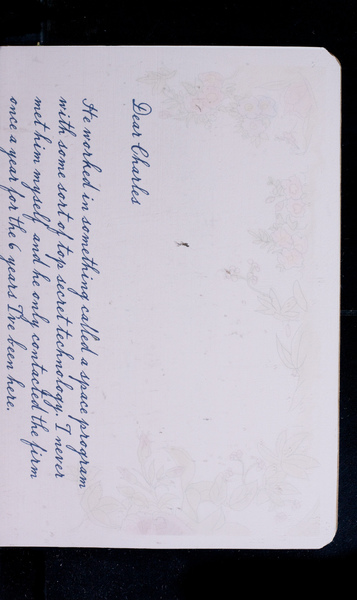 Dear Charles
He worked in something called a space program
with some sort of top secret technology. I never
met him myself and he only contacted the firm
once a year for the 6 years I've been here.